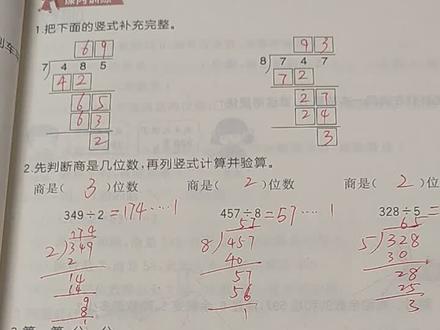 课内训练
1.把下面的竖式补充完整。
6 9 9 3
7 4 8 5 8 7 4 7
4 2 7 2
6 5 2 7
6 3 2 4
2 3
2.先判断商是几位数,再列竖式计算并验算。
商是( 3 )位数 商是( 2 )位数 商是( 2 )位
349÷2 =174……1 457÷8 =57……1 328÷5 =
174 57 65
2 349 8 457 5 328
2 40 30
14 57 28
14 56 25
9 1 3
8
1